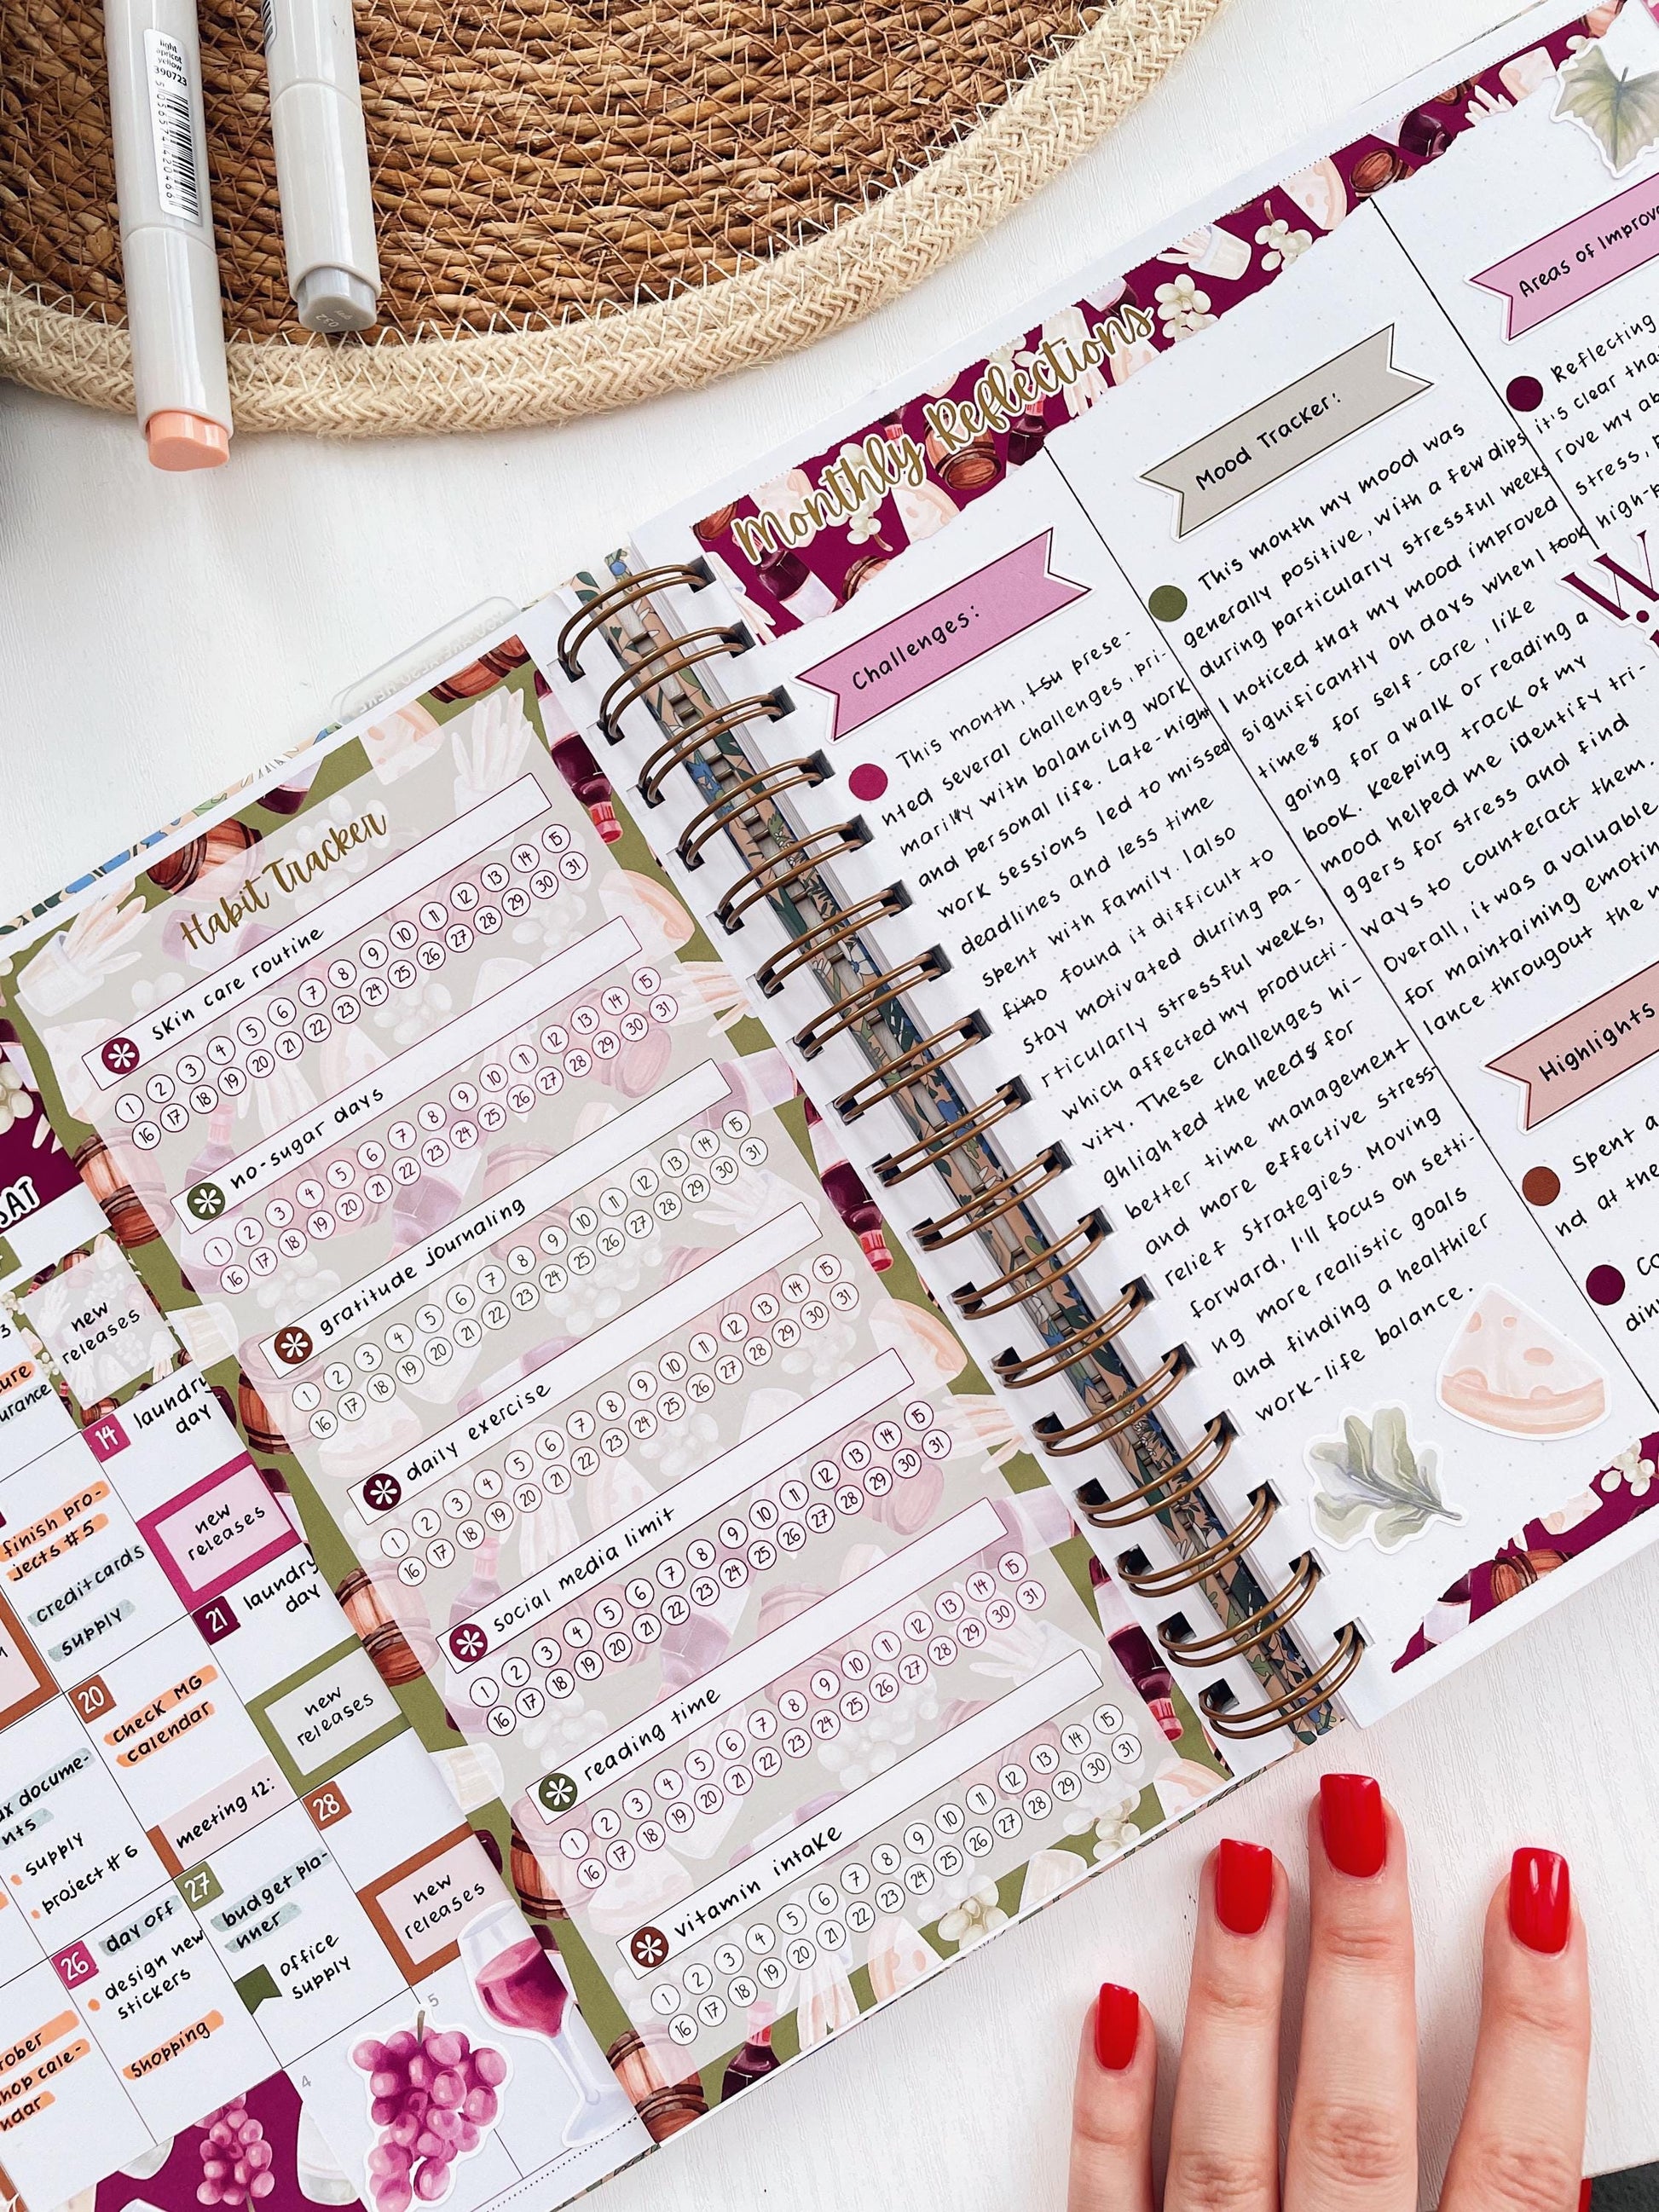 light
apricot
yellow
390723
5056574204066
032
Monthly Reflections
Challenges:
This month, I su prese-
nted several challenges, pri-
marily with balancing work
and personal life. Late-night
work sessions led to missed
deadlines and less time
spent with family. I also
fino found it difficult to
stay motivated during pa-
rticularly stressful weeks,
which affected my producti-
vity. These challenges hi-
ghlighted the needs for
better time management
and more effective stress-
relief strategies. Moving
forward, I'll focus on setti-
ng more realistic goals
and finding a healthier
work-life balance.
Mood Tracker:
This month my mood was
generally positive, with a few dips
during particularly stressful weeks
I noticed that my mood improved
significantly on days when I took
times for self-care, like
going for a walk or reading a
book. Keeping track of my
mood helped me identify tri-
ggers for stress and find
ways to counteract them.
Overall, it was a valuable
for maintaining emotin
lance througout the m
Areas of Improve
Reflecting
it's clear tha
rove my ab
stress, p
high-p
W.
Highlights
Spent a
nd at the
Co
din
Habit Tracker
skin care routine
1 2 3 4 5 6 7 8 9 10 11 12 13 14 15
16 17 18 19 20 21 22 23 24 25 26 27 28 29 30 31
no-sugar days
1 2 3 4 5 6 7 8 9 10 11 12 13 14 15
16 17 18 19 20 21 22 23 24 25 26 27 28 29 30 31
gratitude journaling
1 2 3 4 5 6 7 8 9 10 11 12 13 14 15
16 17 18 19 20 21 22 23 24 25 26 27 28 29 30 31
daily exercise
1 2 3 4 5 6 7 8 9 10 11 12 13 14 15
16 17 18 19 20 21 22 23 24 25 26 27 28 29 30 31
social media limit
1 2 3 4 5 6 7 8 9 10 11 12 13 14 15
16 17 18 19 20 21 22 23 24 25 26 27 28 29 30 31
reading time
1 2 3 4 5 6 7 8 9 10 11 12 13 14 15
16 17 18 19 20 21 22 23 24 25 26 27 28 29 30 31
vitamin intake
1 2 3 4 5 6 7 8 9 10 11 12 13 14 15
16 17 18 19 20 21 22 23 24 25 26 27 28 29 30 31
SAT
new
releases
3
ure
urance
14
laundry
day
new
releases
finish pro-
jects #5
credit cards
supply
21
laundry
day
new
releases
20
check MG
calendar
meeting 12:
ax docume-
nts
supply
project #6
28
new
releases
27
budget pla-
nner
office
supply
26
day off
design new
stickers
shopping
ober
hop cale-
ndar
5
4